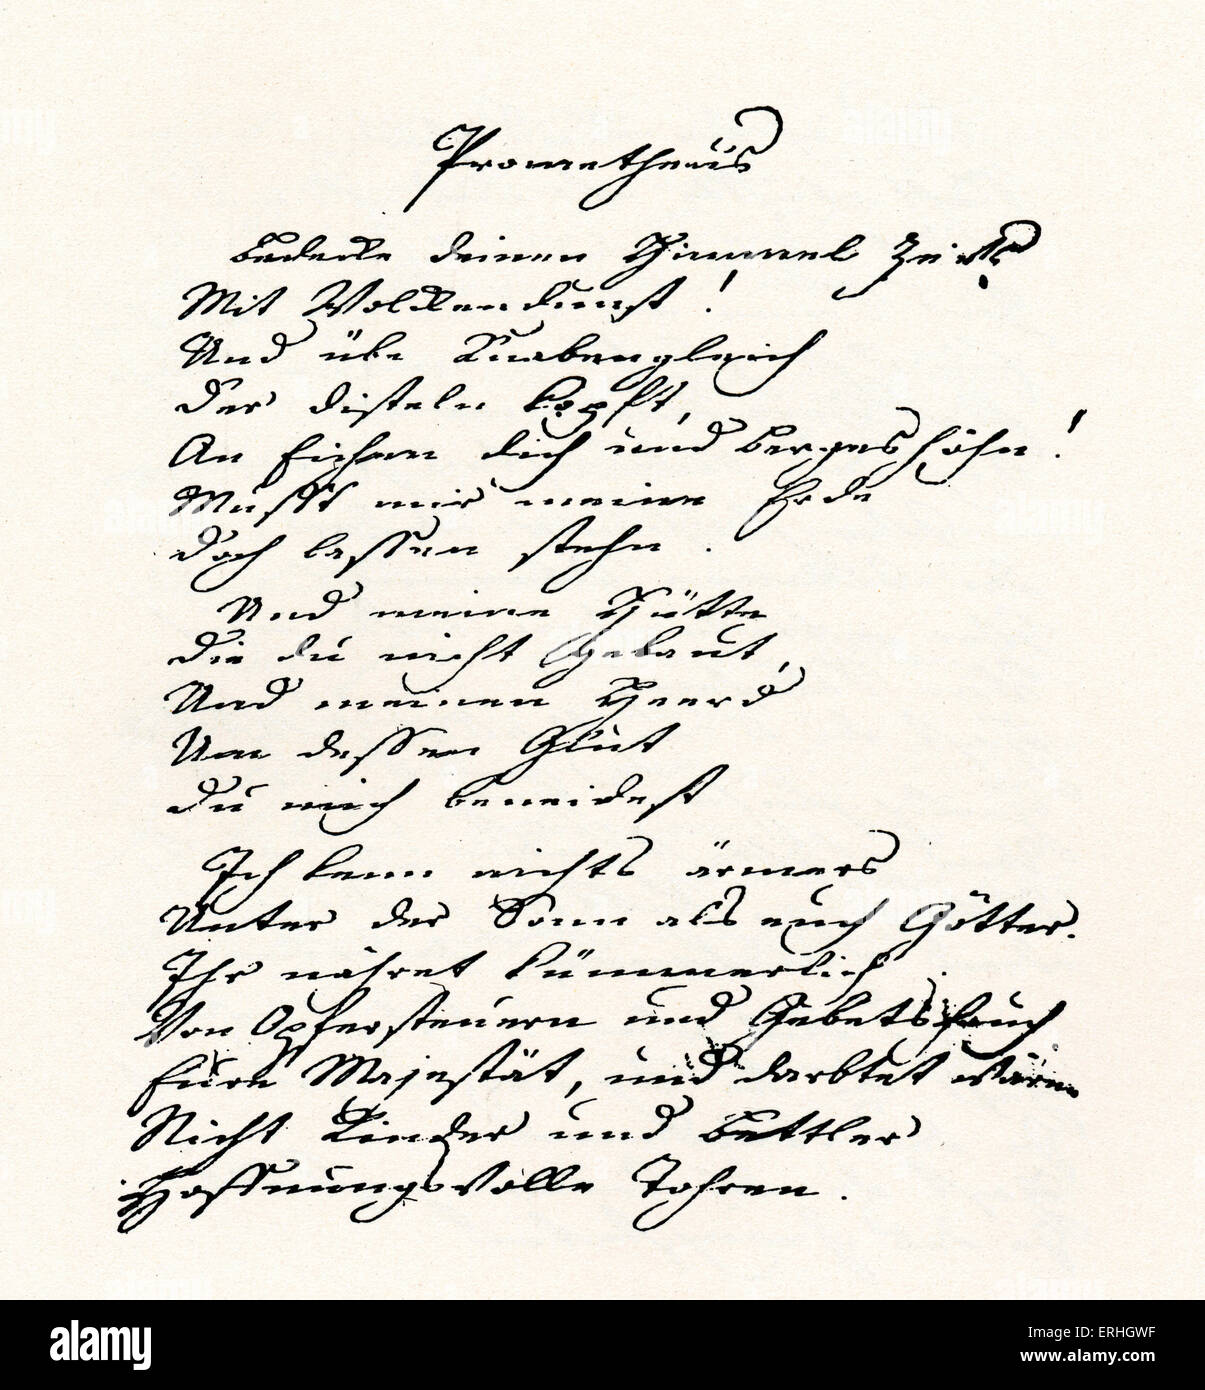 Prometheus
Bedecke deinen Himmel Zeus
Mit Wolckendunst!
Und übe Knabengleich
Der Disteln köpft,
An Eichen dich und Bergeshöhn!
Musst mir meine Erde
Doch lassen stehn.
Und meine Hütte
Die du nicht Gebaut,
Und meinen Heerd
Um dessen Glut
Du mich beneidest
Ich kenn nichts ärmers
Unter der Sonn als euch Götter.
Ihr nähret kümmerlich
Von Opfersteuern und Gebetshauch
Eure Majestät, und darbtet wären
Nicht Kinder und Bettler
Hoffnungsvolle Tohren.
alamy
Image ID: ERHGWF
www.alamy.com